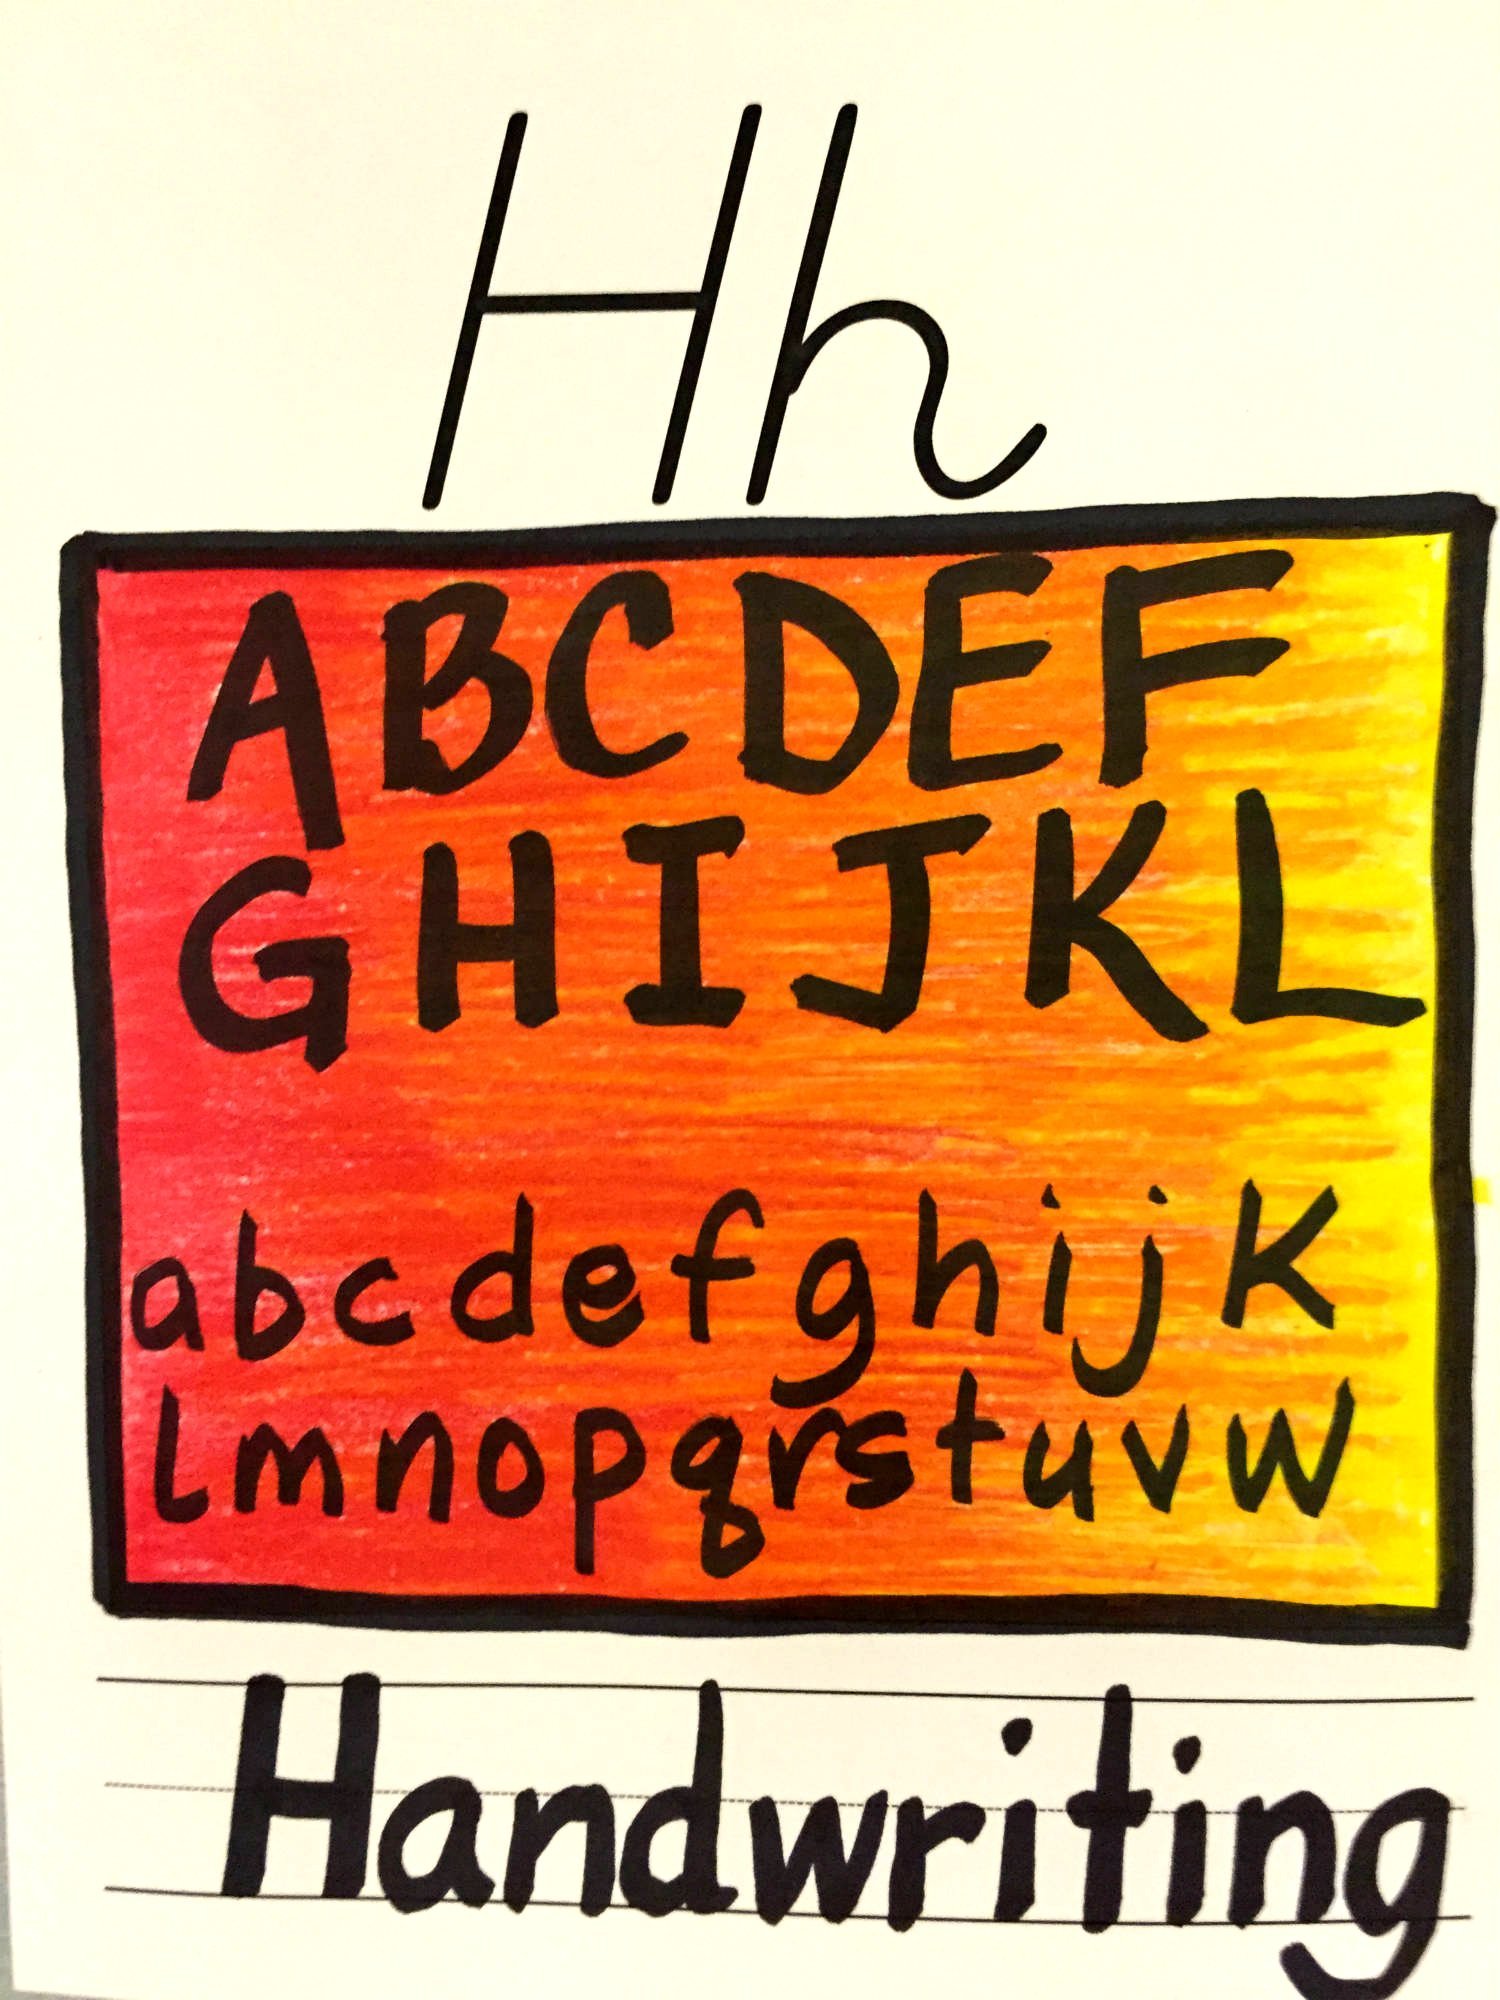 Hh
ABCDEF
GHIJKL
abcdefghijk
lmnopqrstuvw
Handwriting